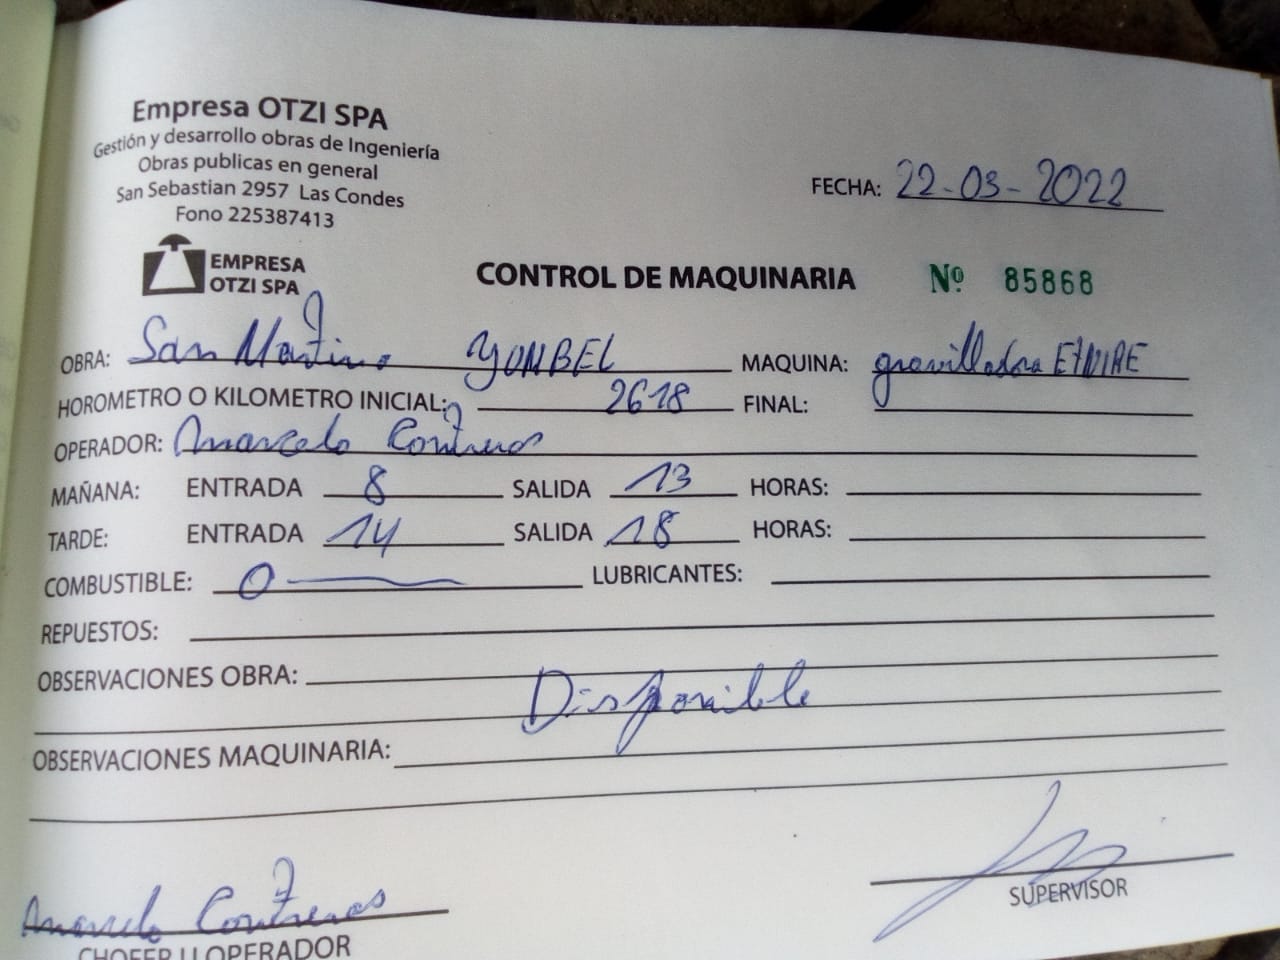 Empresa OTZI SPA
Gestión y desarrollo obras de Ingeniería
Obras publicas en general
San Sebastian 2957 Las Condes
Fono 225387413
FECHA: 22-03-2022
EMPRESA
OTZI SPA
CONTROL DE MAQUINARIA Nº 85868
OBRA: San Martino YUMBEL MAQUINA: gravilladora
HOROMETRO O KILOMETRO INICIAL: 2618 FINAL:
OPERADOR: Marcelo Contreras
MAÑANA: ENTRADA 8 SALIDA 13 HORAS:
TARDE: ENTRADA 14 SALIDA 18 HORAS:
COMBUSTIBLE: 0 LUBRICANTES:
REPUESTOS:
OBSERVACIONES OBRA:
Disponible
OBSERVACIONES MAQUINARIA:
Marcelo Contreras
SUPERVISOR
CHOFER U OPERADOR